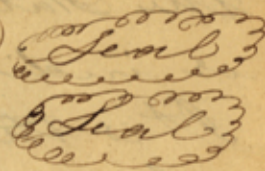 Seal
Seal